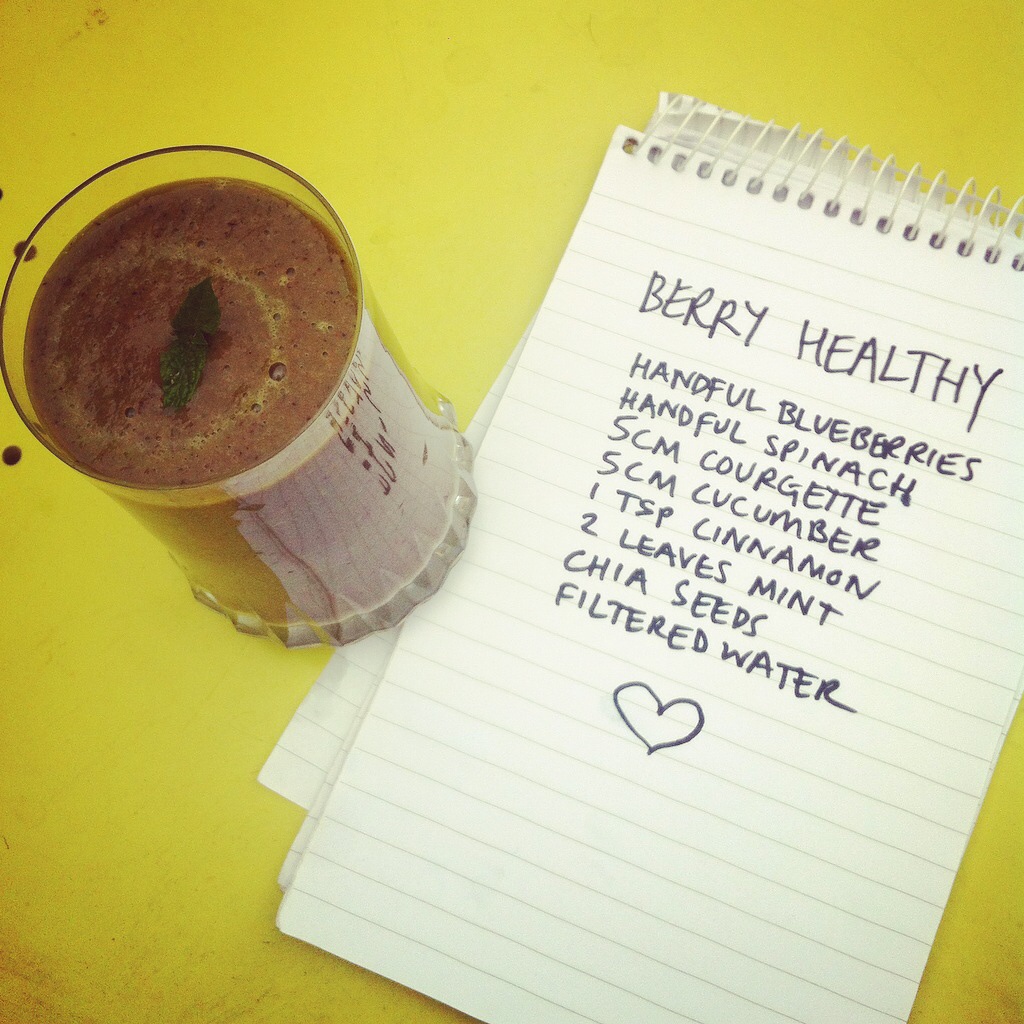 BERRY HEALTHY
HANDFUL BLUEBERRIES
HANDFUL SPINACH
5CM COURGETTE
5CM CUCUMBER
1 TSP CINNAMON
2 LEAVES MINT
CHIA SEEDS
FILTERED WATER